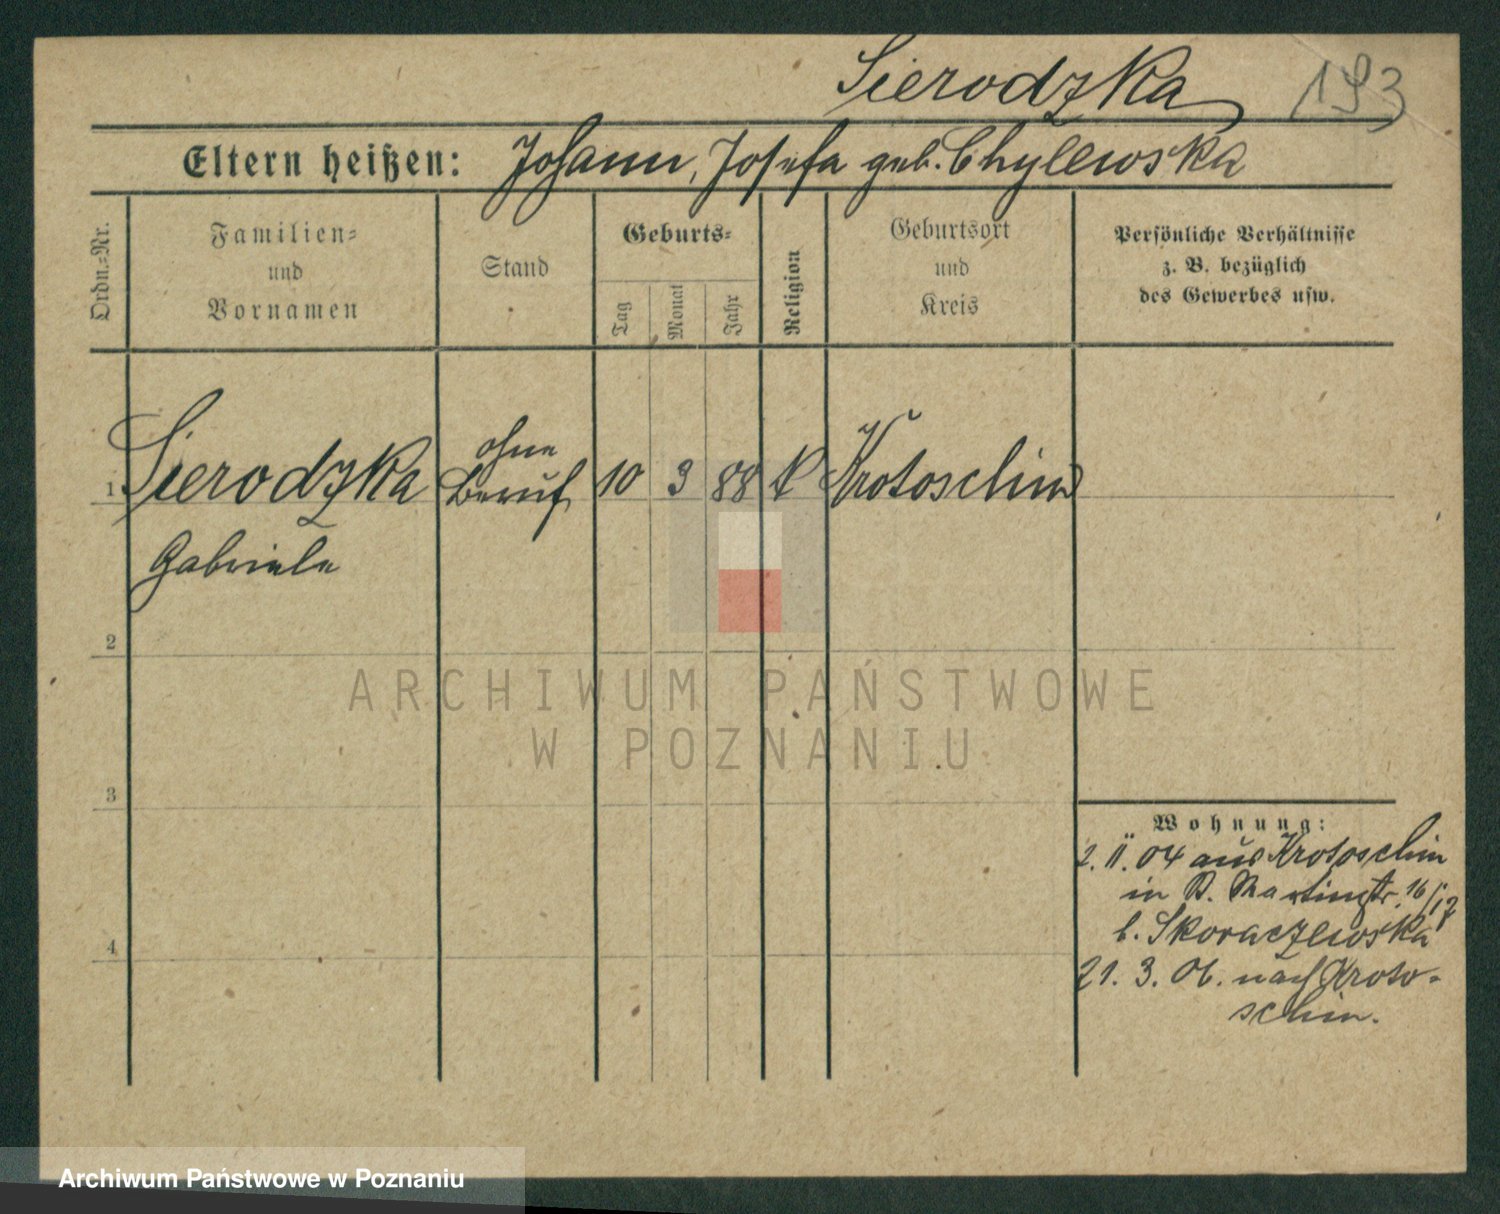 Sierodzka 193
Eltern heißen: Johann, Josefa geb. Chylewska
Ordn.-Nr.
Familien-
und
Vornamen
Stand
Geburts-
Tag
Monat
Jahr
Religion
Geburtsort
und
Kreis
Persönliche Verhältnisse
z. B. bezüglich
des Gewerbes usw.
ohne
1 Sierodzka Beruf 10 3 88 k Krotoschin
Gabriele
2
3
4
Wohnung:
2. II. 04 aus Krotoschin
in St. Martinstr. 16/17
b. Skoraczewska
21. 3. 06. nach Kroto-
schin.
ARCHIWUM PAŃSTWOWE
W POZNANIU
Archiwum Państwowe w Poznaniu